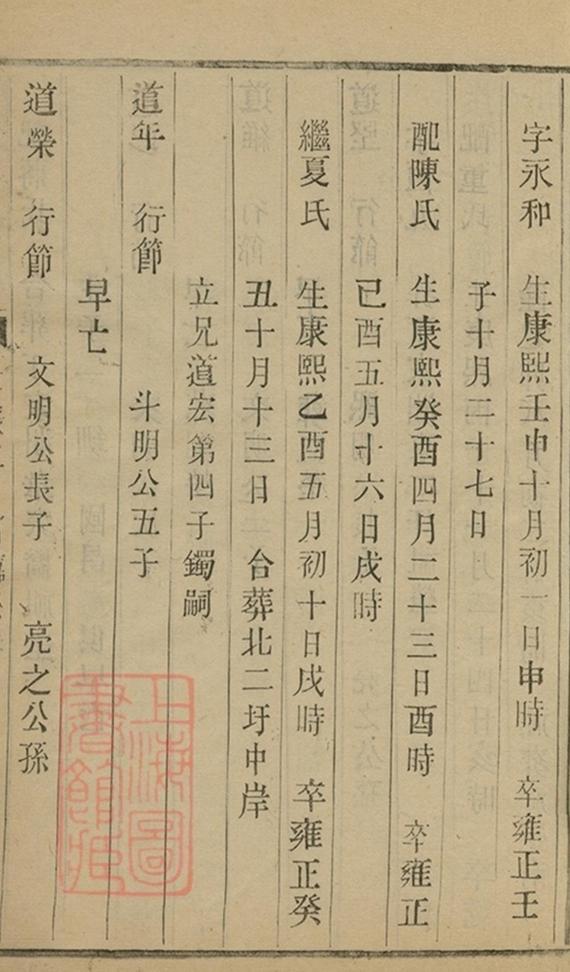 字永和 生康熙壬申十月初一日申時 卒雍正壬
子十月二十七日
配陳氏 生康熙癸酉四月二十三日酉時 卒雍正
已酉五月十六日戌時
繼夏氏 生康熙乙酉五月初十日戌時 卒雍正癸
丑十月十三日 合葬北二圩中岸
立兄道宏第四子鐲嗣
道年 行節 斗明公五子
早亡
道榮 行節 文明公長子 亮之公孫
上海圖書館藏